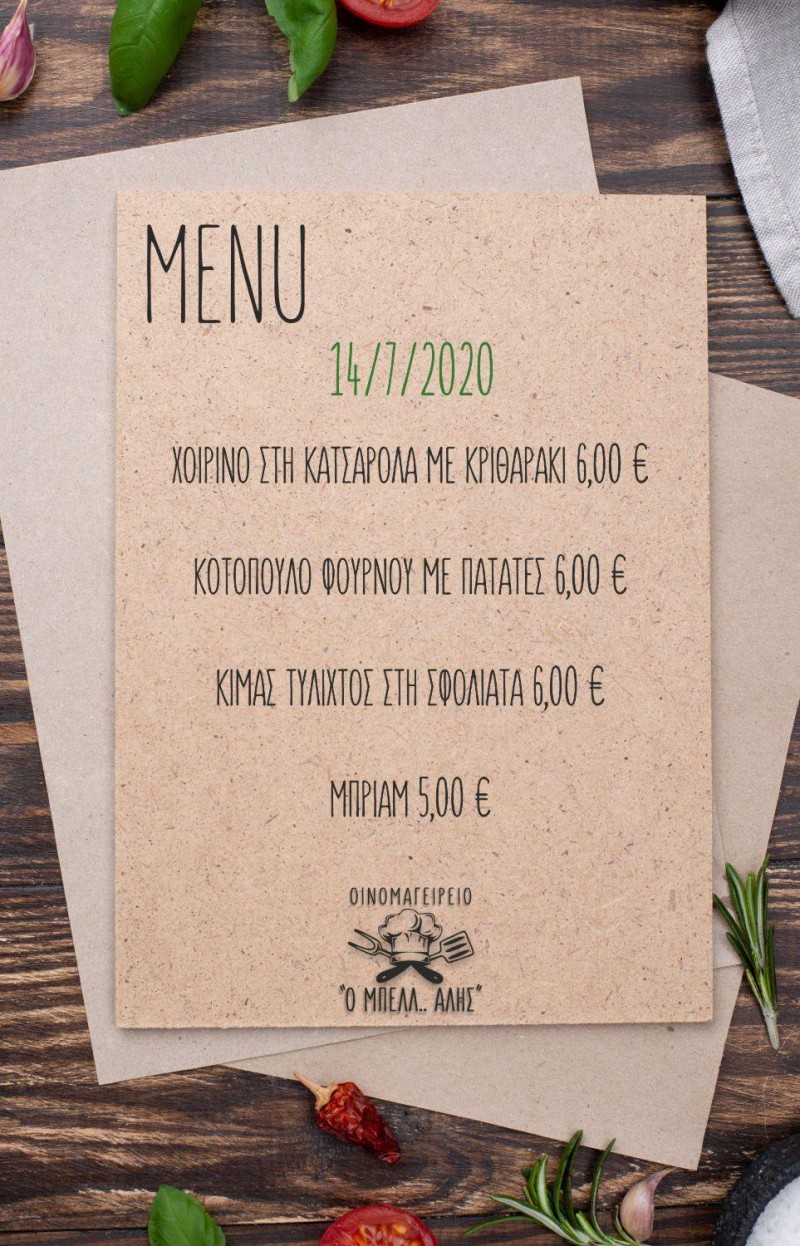 MENU
14/7/2020
ΧΟΙΡΙΝΟ ΣΤΗ ΚΑΤΣΑΡΟΛΑ ΜΕ ΚΡΙΘΑΡΑΚΙ 6,00 €
ΚΟΤΟΠΟΥΛΟ ΦΟΥΡΝΟΥ ΜΕ ΠΑΤΑΤΕΣ 6,00 €
ΚΙΜΑΣ ΤΥΛΙΧΤΟΣ ΣΤΗ ΣΦΟΛΙΑΤΑ 6,00 €
ΜΠΡΙΑΜ 5,00 €
ΟΙΝΟΜΑΓΕΙΡΕΙΟ
"Ο ΜΠΕΛΛ.. ΑΛΗΣ"